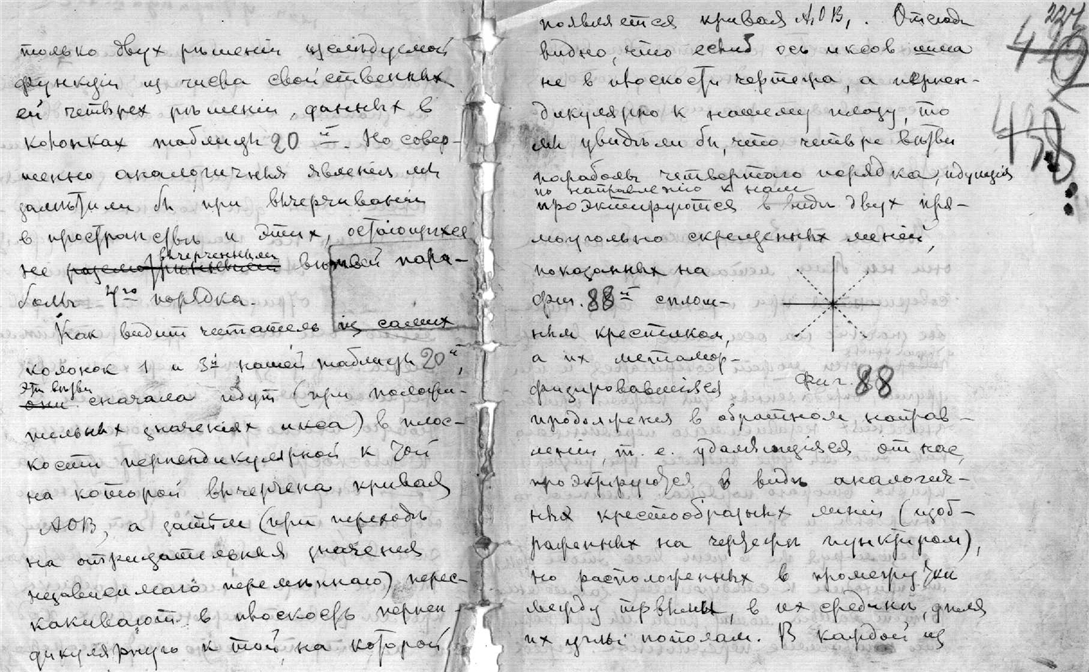 только двух рѣшеній изслѣдуемой
функціи из числа свойственных
ей четырех рѣшеній, данных в
колонках таблицы 20 й. Но совер-
шенно аналогичныя явленія мы
замѣтили бы при вычерчиваніи
в пространствѣ и этих, остающихся
не вычерченными вѣтвей пара-
болы 4го порядка.
Как видит читатель из самих
колонок 1 и 3й нашей таблицы 20й,
эти вѣтви
сначала идут (при положи-
тельных значеніях икса) в плос-
кости перпендикулярной к той
на которой вычерчена кривая
АОВ, а затѣм (при переходѣ
на отрицательныя значенія
независимаго перемѣннаго) перес-
какивают в плоскость перпен
дикулярную к той, на которой
появляется кривая А,ОВ,. Отсюда
видно, что еслиб ось иксов шла
не в плоскости чертежа, а перпен-
дикулярно к нашему глазу, то
мы увидѣли бы, что четыре вѣтви
параболы четвертаго порядка, идущія
по направленію к нам
проэктируются в видѣ двух пря-
моугольно скрещенных линій,
показанных на
фиг. 88й сплош-
ным крестиком,
а их метамор-
физировавшіяся
Фиг. 88
продолженія в обратном направ
леніи т. е. удаляющіяся от нас,
проэктируются в видѣ аналогич-
ных крестообразных линій (изоб-
раженных на чертежѣ пунктиром),
но расположенных в промежутки
между первыми, в их срединѣ, дѣля
их углы пополам. В каждой из
227
438